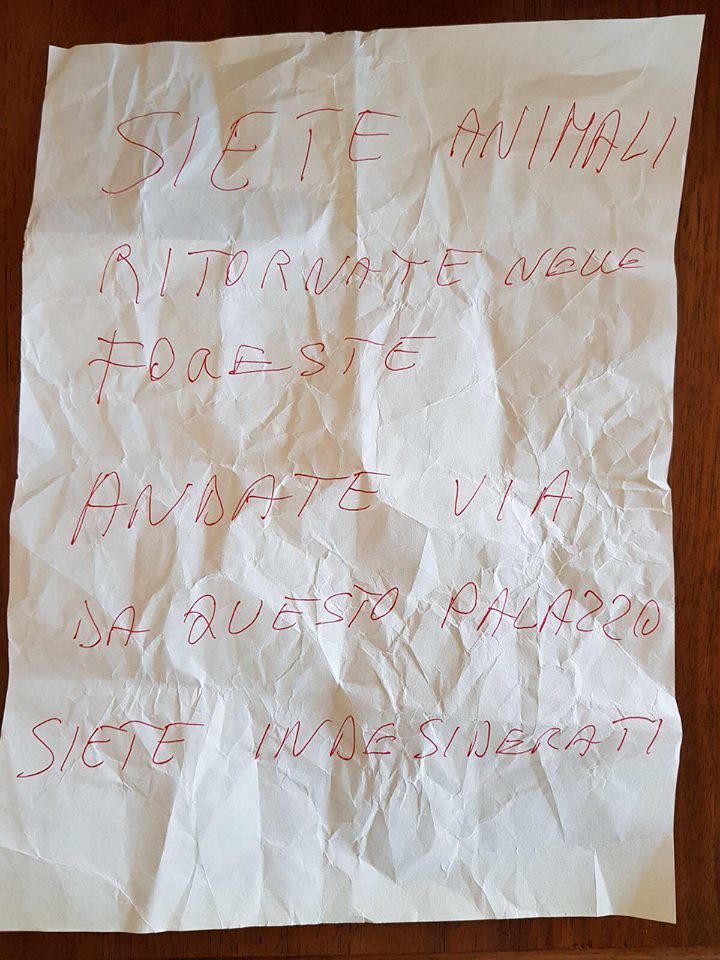 SIETE ANIMALI
RITORNATE NELLE
FORESTE
ANDATE VIA
DA QUESTO PALAZZO
SIETE INDESIDERATI